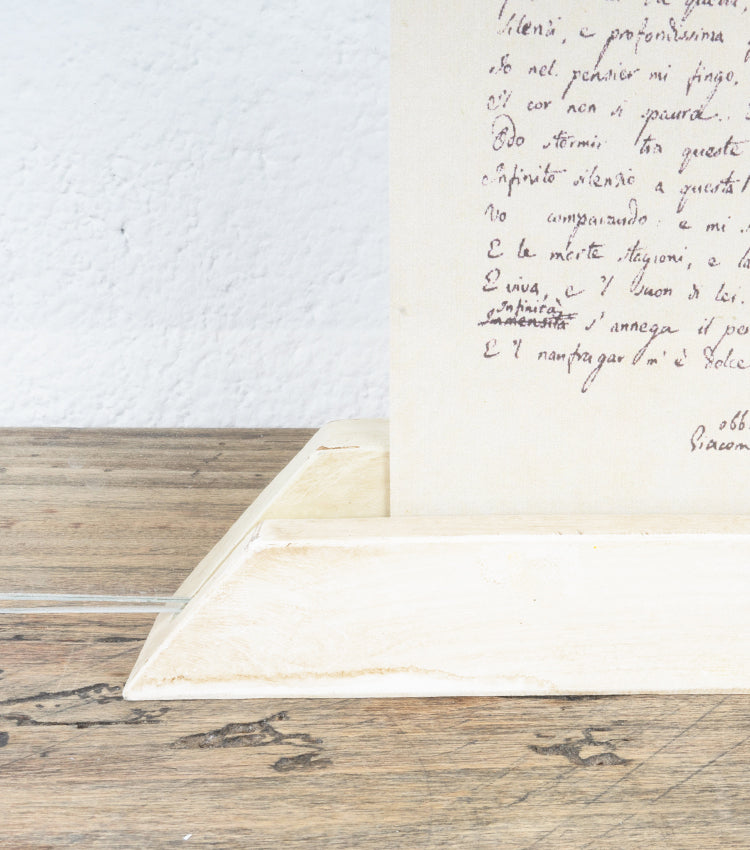 di là da quella,
silenzi, e profondissima
Io nel pensier mi fingo,
Il cor non si spaura..
Odo stormir tra queste
Infinito silenzio a questa
Vo comparando: e mi s
E le morte stagioni, e la
E viva, e 'l suon di lei.
Infinità
Immensità s' annega il pen
E 'l naufragar m' è dolce
obb
Giacom